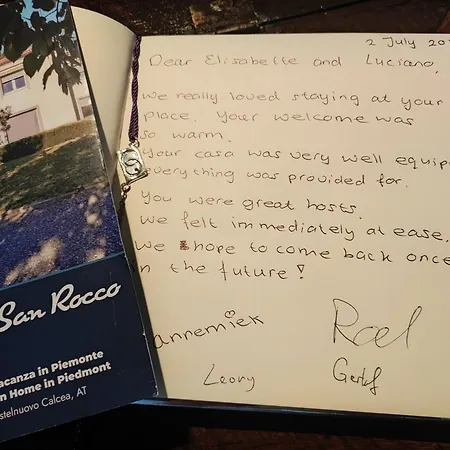 San Rocco
acanza in Piemonte
n Home in Piedmont
stelnuovo Calcea, AT
2 July 20
Dear Elisabette and Luciano,
We really loved staying at your
place. Your welcome was
so warm.
Your casa was very well equip
everything was provided for.
You were great hosts.
We felt immediately at ease.
We hope to come back once
in the future!
annemiek
Roel
Leony